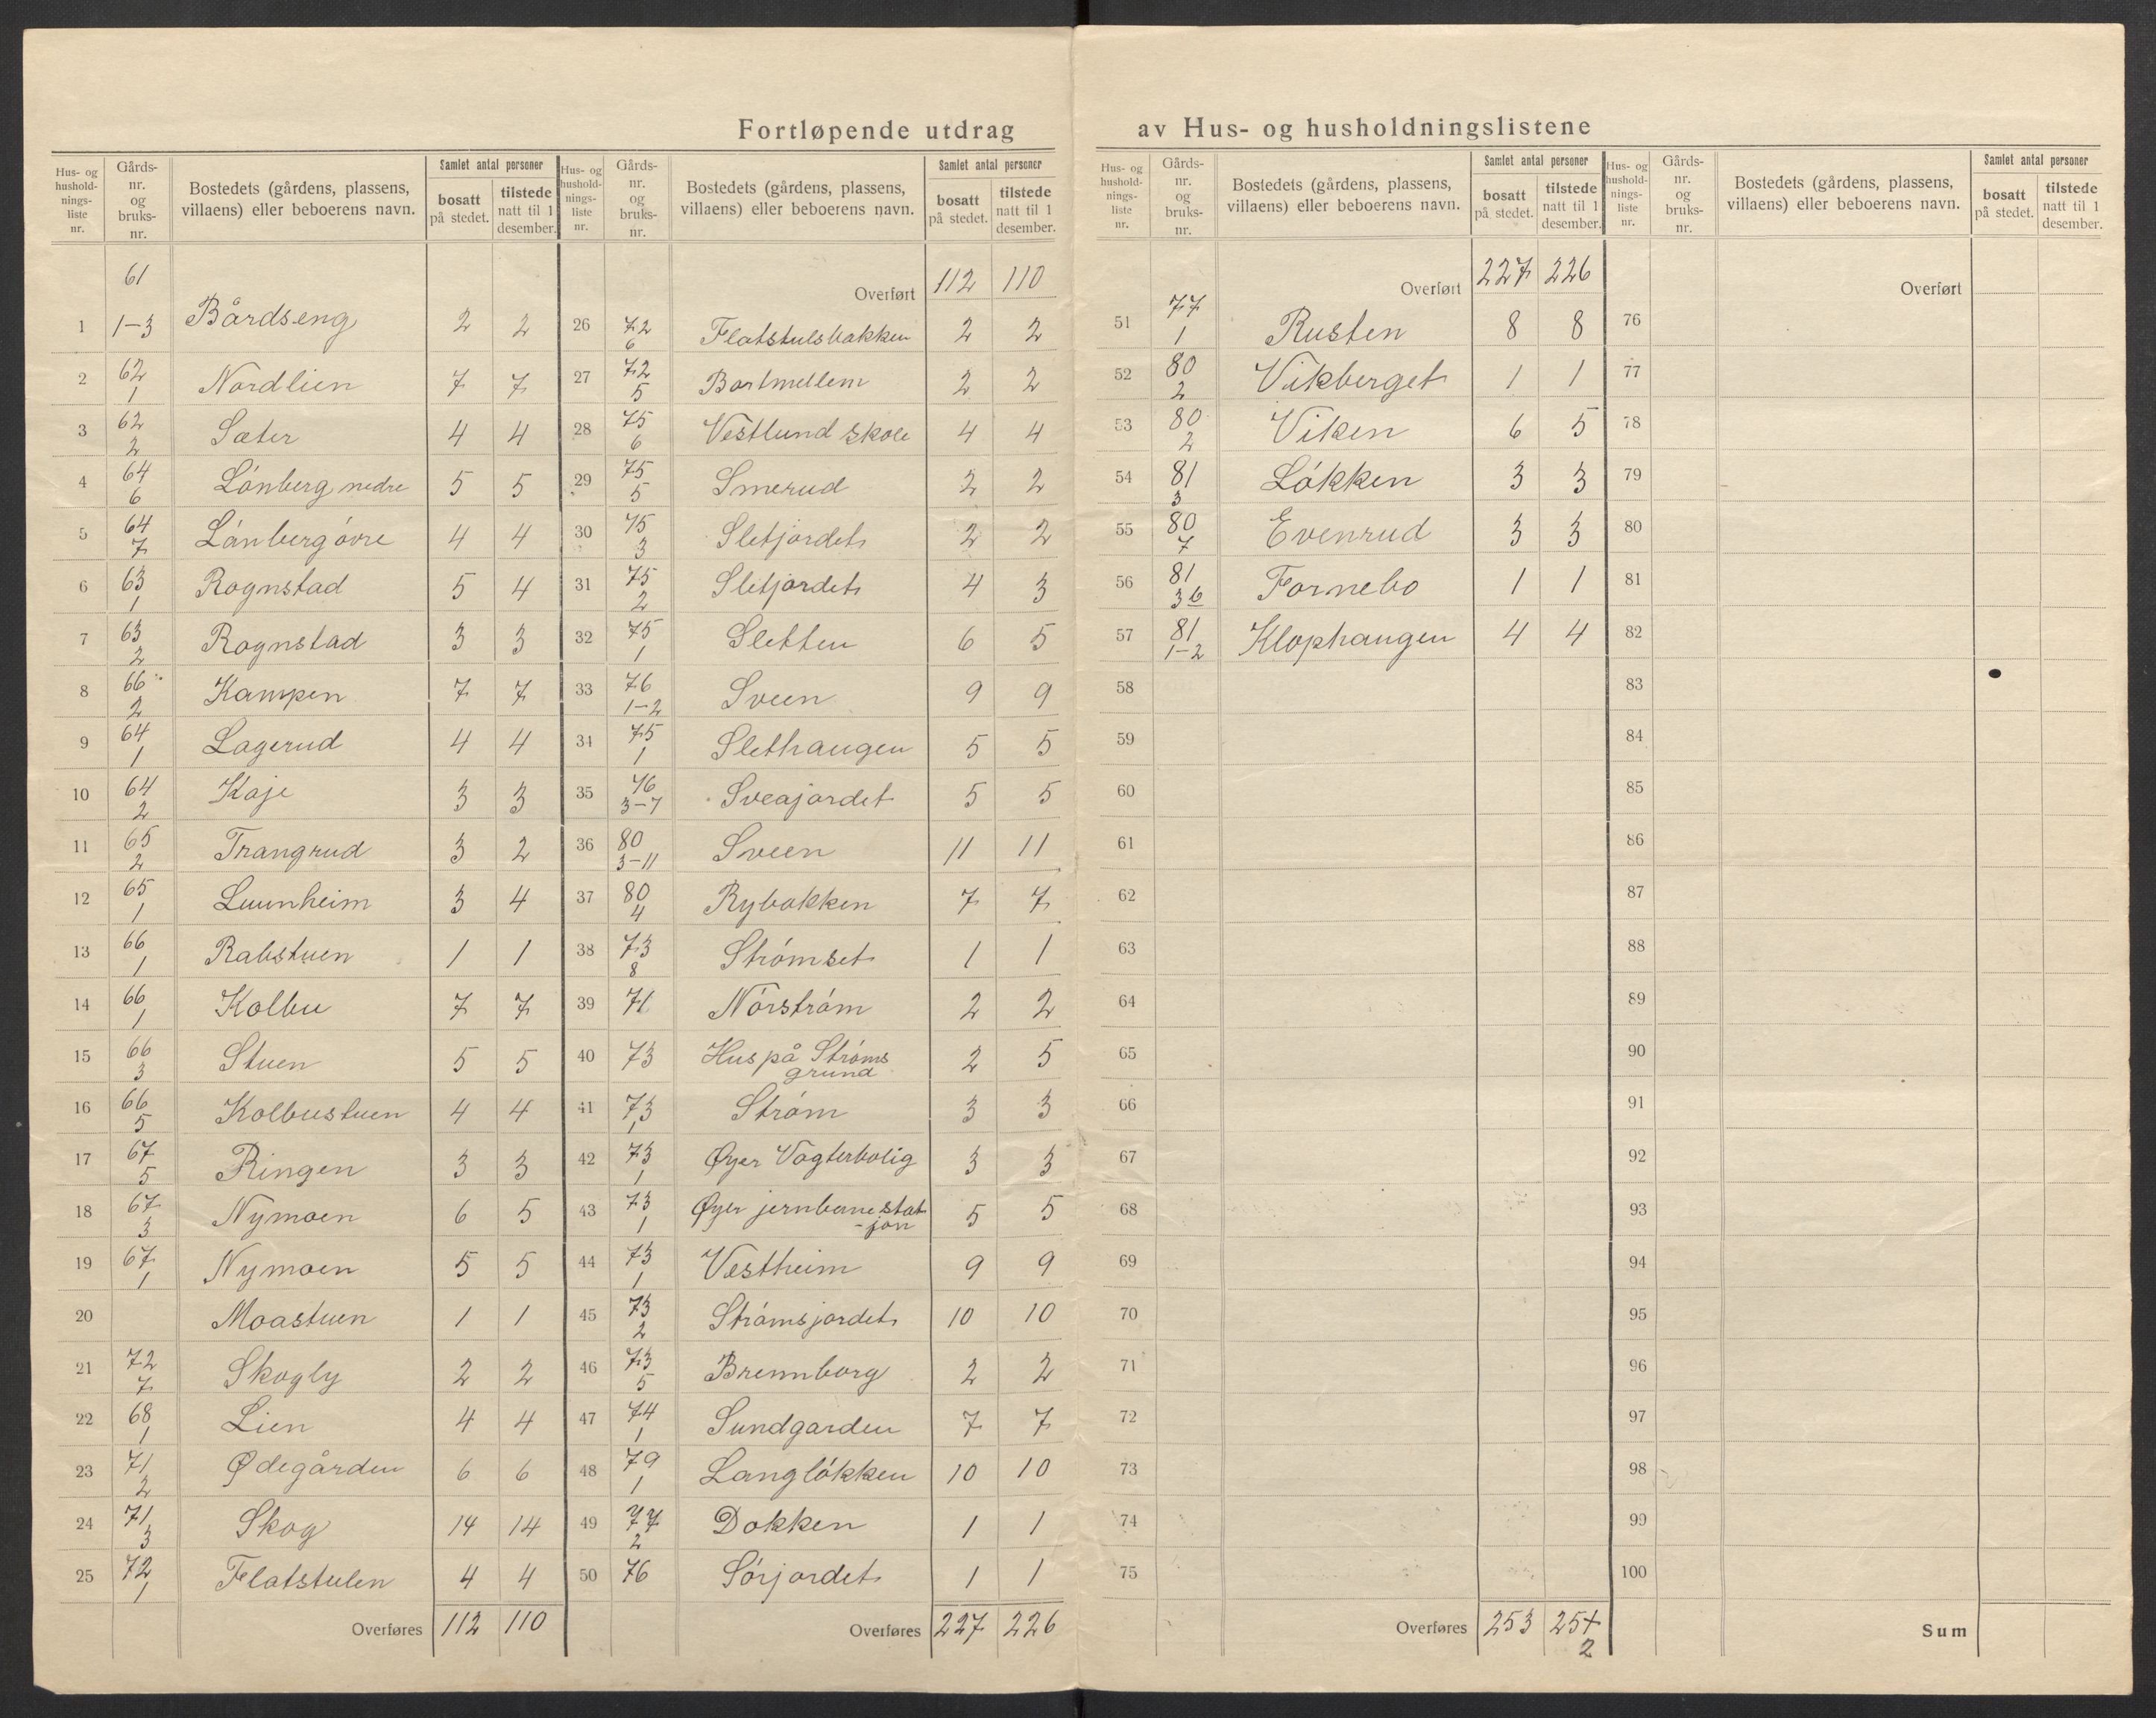 Fortløpende utdrag av Hus- og husholdningslistene
Hus- og husholdnings-liste nr. Gårds-nr. og bruks-nr. Bostedets (gårdens, plassens, villaens) eller beboerens navn. Samlet antal personer bosatt på stedet. tilstede natt til 1 desember.
1 61 1-3 Bårdseng 2 2
2 62 1 Nordlien 7 7
3 62 2 Sæter 4 4
4 64 6 Lónberg nedre 5 5
5 64 7 Lónberg óvre 4 4
6 63 1 Rognstad 5 4
7 63 2 Rognstad 3 3
8 66 2 Kampen 7 7
9 64 1 Lagerud 4 4
10 64 2 Kaje 3 3
11 65 2 Trangrud 3 2
12 65 1 Luunheim 3 4
13 66 1 Rabstuen 1 1
14 66 1 Kolbu 7 7
15 66 3 Stuen 5 5
16 66 5 Kolbustuen 4 4
17 67 5 Ringen 3 3
18 67 3 Nymoen 6 5
19 67 1 Nymoen 5 5
20 Moastuen 1 1
21 72 7 Skogly 2 2
22 68 1 Lien 4 4
23 71 2 Ødegården 6 6
24 71 3 Skog 14 14
25 72 1 Flatstulen 4 4
Overføres 112 110
Hus- og husholdnings-liste nr. Gårds-nr. og bruks-nr. Bostedets (gårdens, plassens, villaens) eller beboerens navn. Samlet antal personer bosatt på stedet. tilstede natt til 1 desember.
Overført 112 110
26 72 6 Flatstulsbakken 2 2
27 72 5 Bortmellem 2 2
28 75 6 Vestlund skole 4 4
29 75 5 Smerud 2 2
30 75 3 Sletjordet 2 2
31 75 2 Sletjordet 4 3
32 75 1 Sletten 6 5
33 76 1-2 Sveen 9 9
34 75 1 Slethaugen 5 5
35 76 3-7 Sveajordet 5 5
36 80 3-11 Sveen 11 11
37 80 4 Rybakken 7 7
38 73 8 Strómset 1 1
39 71 Nórstróm 2 2
40 73 Hus på Stróms grund 2 5
41 73 1 Stróm 3 3
42 73 1 Øyer Vagterbolig 3 3
43 73 1 Øyer jernbanestat-jon 5 5
44 73 1 Vestheim 9 9
45 73 2 Strómsjordet 10 10
46 73 5 Brennborg 2 2
47 74 1 Sundgarden 7 7
48 79 1 Langlókken 10 10
49 77 2 Dokken 1 1
50 76 Sórjordet 1 1
Overføres 227 226
Hus- og husholdnings-liste nr. Gårds-nr. og bruks-nr. Bostedets (gårdens, plassens, villaens) eller beboerens navn. Samlet antal personer bosatt på stedet. tilstede natt til 1 desember.
Overført 227 226
51 77 1 Rusten 8 8
52 80 2 Vikberget 1 1
53 80 2 Viken 6 5
54 81 3 Lókken 3 3
55 80 7 Evenrud 3 3
56 81 36 Fornebo 1 1
57 81 1-2 Klophaugen 4 4
58
59
60
61
62
63
64
65
66
67
68
69
70
71
72
73
74
75
Overføres 253 25+ 2
Hus- og husholdnings-liste nr. Gårds-nr. og bruks-nr. Bostedets (gårdens, plassens, villaens) eller beboerens navn. Samlet antal personer bosatt på stedet. tilstede natt til 1 desember.
Overført
76
77
78
79
80
81
82
83
84
85
86
87
88
89
90
91
92
93
94
95
96
97
98
99
100
Sum